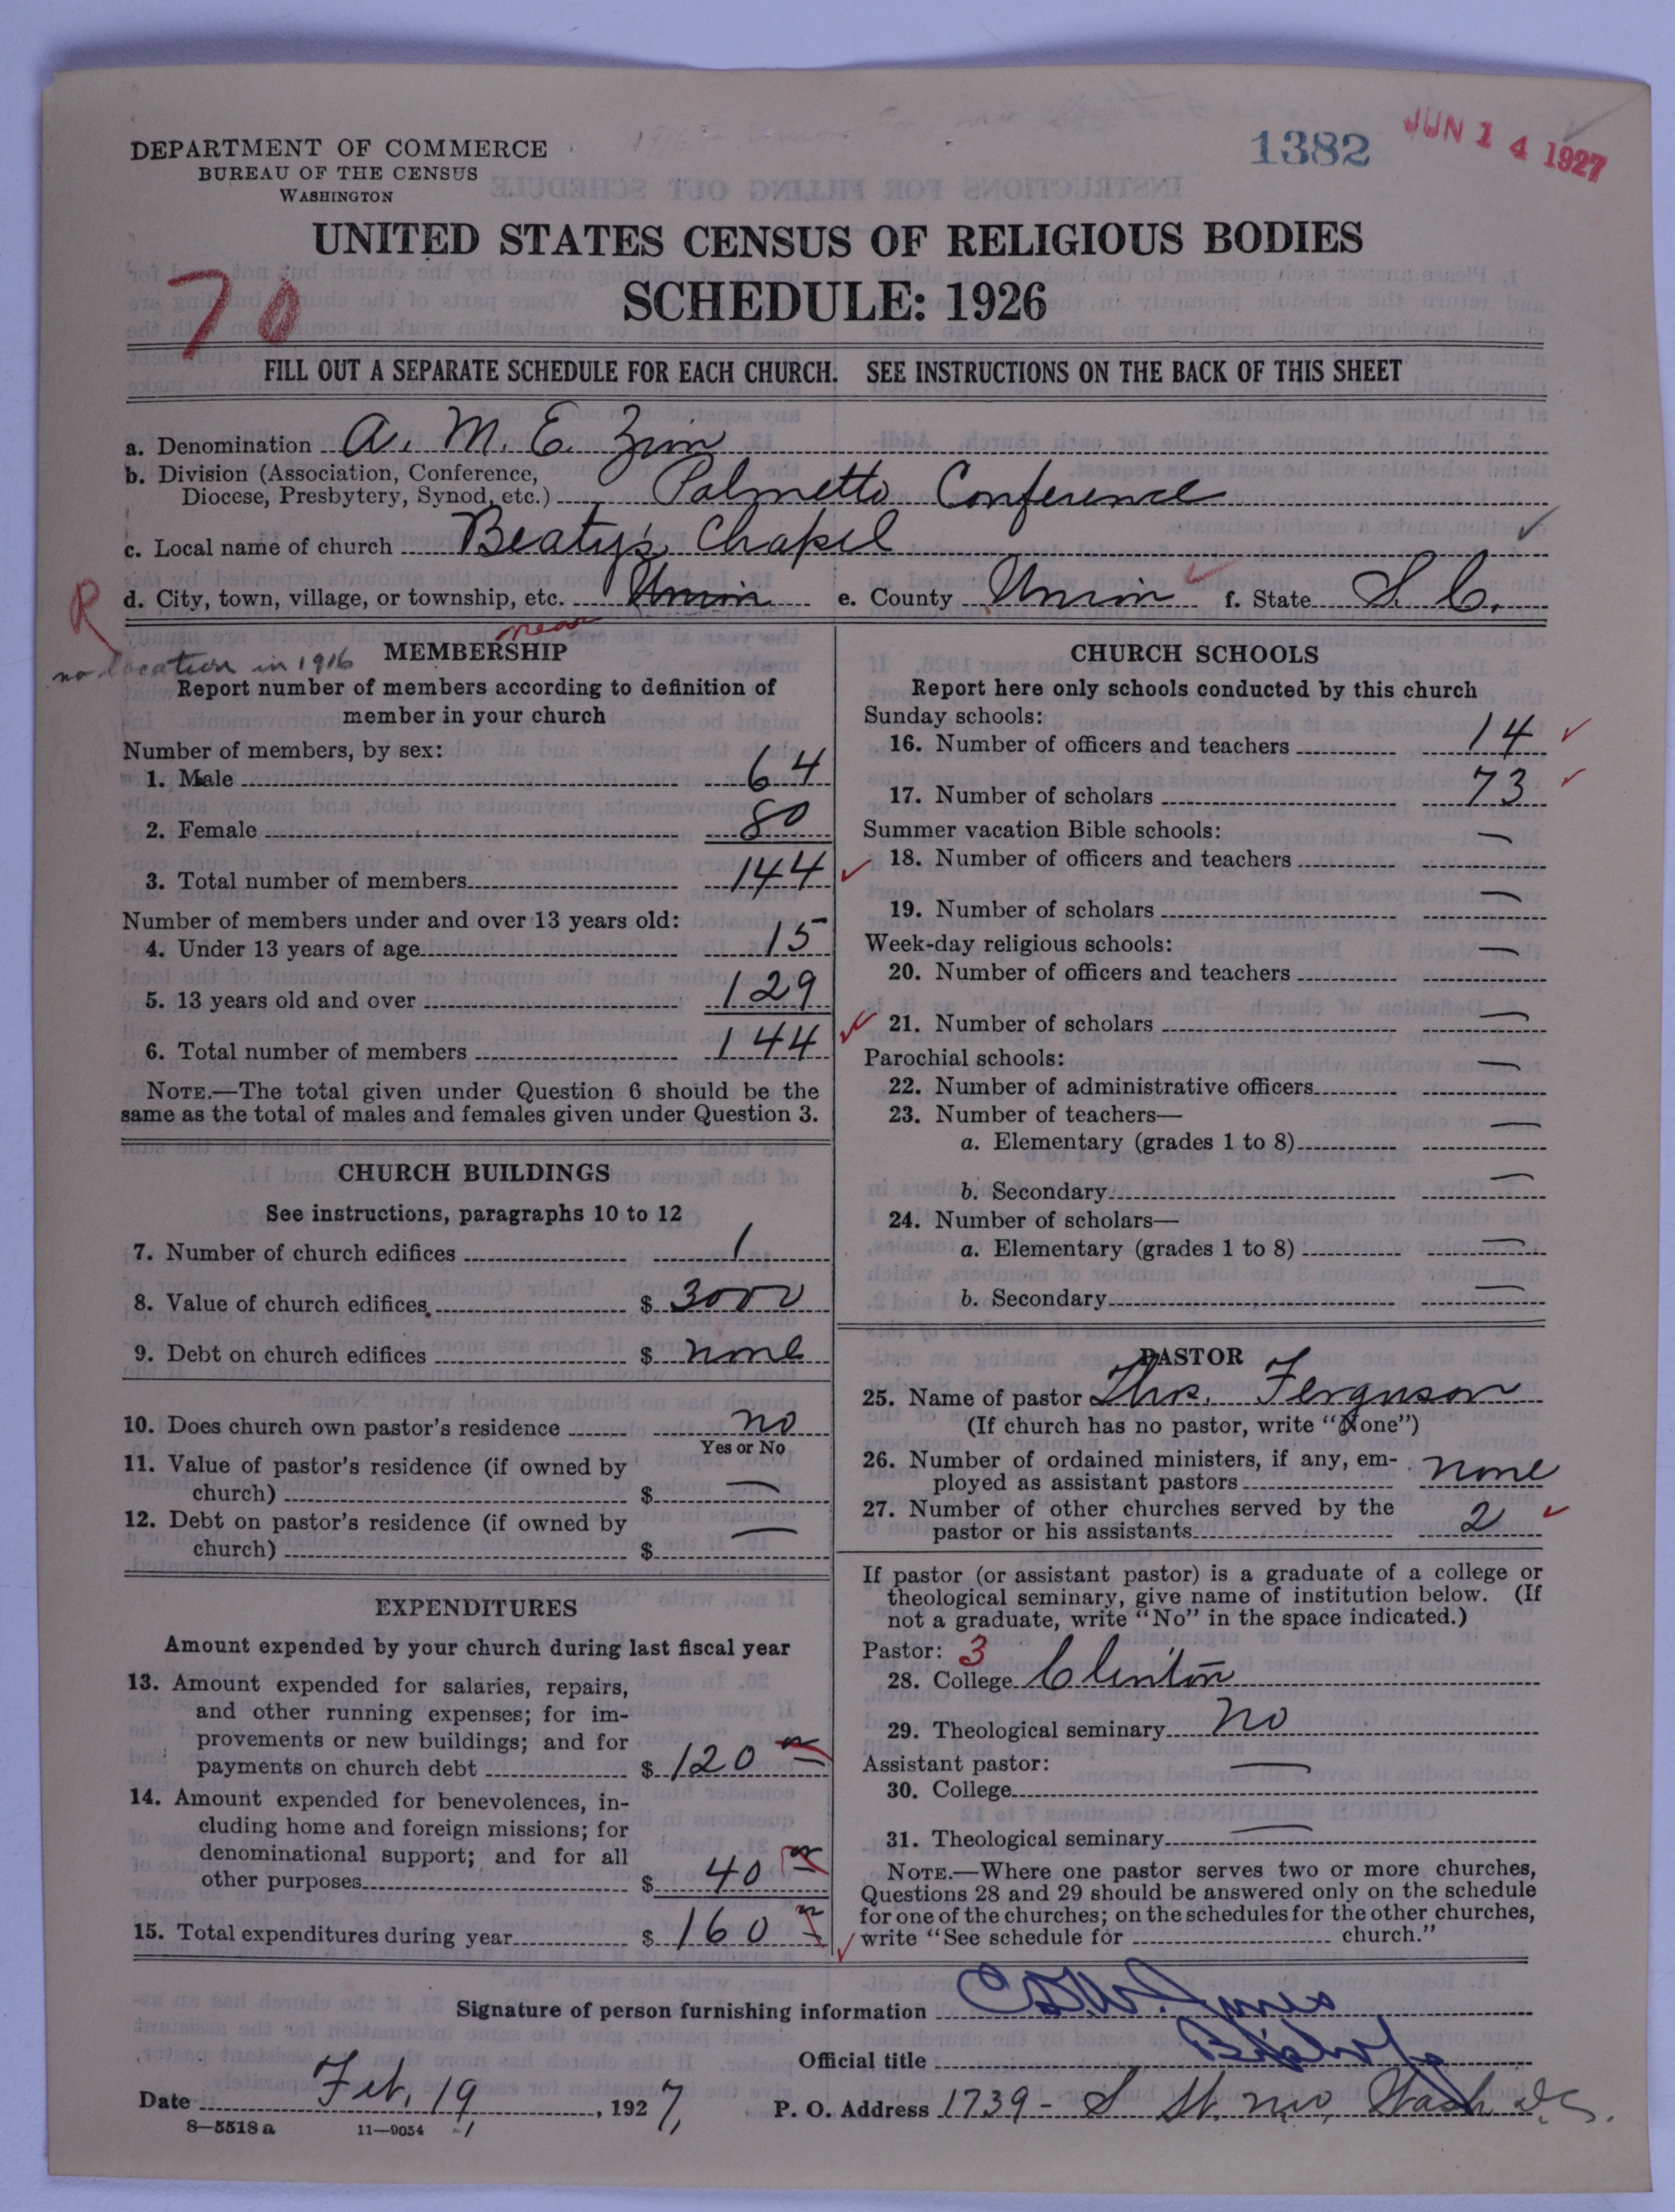 1382
JUN 14 1927
DEPARTMENT OF COMMERCE
BUREAU OF THE CENSUS
WASHINGTON
UNITED STATES CENSUS OF RELIGIOUS BODIES
70
SCHEDULE: 1926
FILL OUT A SEPARATE SCHEDULE FOR EACH CHURCH. SEE INSTRUCTIONS ON THE BACK OF THIS SHEET
a. Denomination A. M. E. Zion
b. Division (Association, Conference,
Diocese, Presbytery, Synod, etc.) Palmetto Conference
c. Local name of church Beaty's Chapel
R d. City, town, village, or township, etc. Union e. County Union f. State S. C.
near
no location in 1916
MEMBERSHIP
Report number of members according to definition of
member in your church
Number of members, by sex:
1. Male 64
2. Female 80
3. Total number of members 144
Number of members under and over 13 years old:
4. Under 13 years of age 15
5. 13 years old and over 129
6. Total number of members 144
NOTE.—The total given under Question 6 should be the
same as the total of males and females given under Question 3.
CHURCH BUILDINGS
See instructions, paragraphs 10 to 12
7. Number of church edifices 1
8. Value of church edifices $ 3000
9. Debt on church edifices $ none
10. Does church own pastor's residence no
Yes or No
11. Value of pastor's residence (if owned by
church) $ —
12. Debt on pastor's residence (if owned by
church) $ —
EXPENDITURES
Amount expended by your church during last fiscal year
13. Amount expended for salaries, repairs,
and other running expenses; for im-
provements or new buildings; and for
payments on church debt $ 120
14. Amount expended for benevolences, in-
cluding home and foreign missions; for
denominational support; and for all
other purposes $ 40
15. Total expenditures during year $ 160
CHURCH SCHOOLS
Report here only schools conducted by this church
Sunday schools:
16. Number of officers and teachers 14
17. Number of scholars 73
Summer vacation Bible schools:
18. Number of officers and teachers —
19. Number of scholars —
Week-day religious schools:
20. Number of officers and teachers —
21. Number of scholars —
Parochial schools:
22. Number of administrative officers —
23. Number of teachers—
a. Elementary (grades 1 to 8) —
b. Secondary —
24. Number of scholars—
a. Elementary (grades 1 to 8) —
b. Secondary —
PASTOR
25. Name of pastor Thos. Ferguson
(If church has no pastor, write "None")
26. Number of ordained ministers, if any, em-
ployed as assistant pastors none
27. Number of other churches served by the
pastor or his assistants 2
If pastor (or assistant pastor) is a graduate of a college or
theological seminary, give name of institution below. (If
not a graduate, write "No" in the space indicated.)
Pastor: 3
28. College Clinton
29. Theological seminary no
Assistant pastor:
30. College —
31. Theological seminary —
NOTE.—Where one pastor serves two or more churches,
Questions 28 and 29 should be answered only on the schedule
for one of the churches; on the schedules for the other churches,
write "See schedule for church."
Signature of person furnishing information
Official title Bishop
Date Feb. 19, 1927, P. O. Address 1739 - S St. nw, Wash D.C.
8—5518a 11—9054